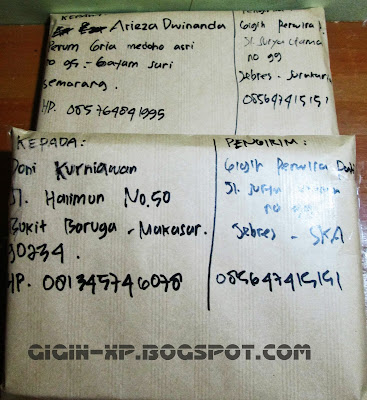 KEPADA:
Arieza Dwinanda
Perum Gria medoho asri
no 05 - Gayam sari
semarang.
HP. 085764841995
Gigih Perwira
Jl. Surya Utama
no 99
Jebres - Surakarta
085647415151
KEPADA:
Doni Kurniawan
Jl. Halimun No.50
Bukit Boruga - Makasar.
90234.
HP. 081345746078
PENGIRIM:
Gigih Perwira
Jl. Surya
no 99
Jebres - SKA
085647415151
GIGIH-XP.BOGSPOT.COM